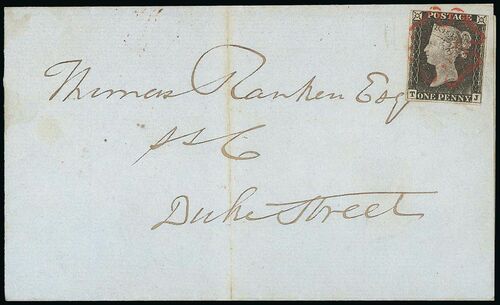 POSTAGE
ONE PENNY
T J
Thomas Ranken Esq
Duke Street